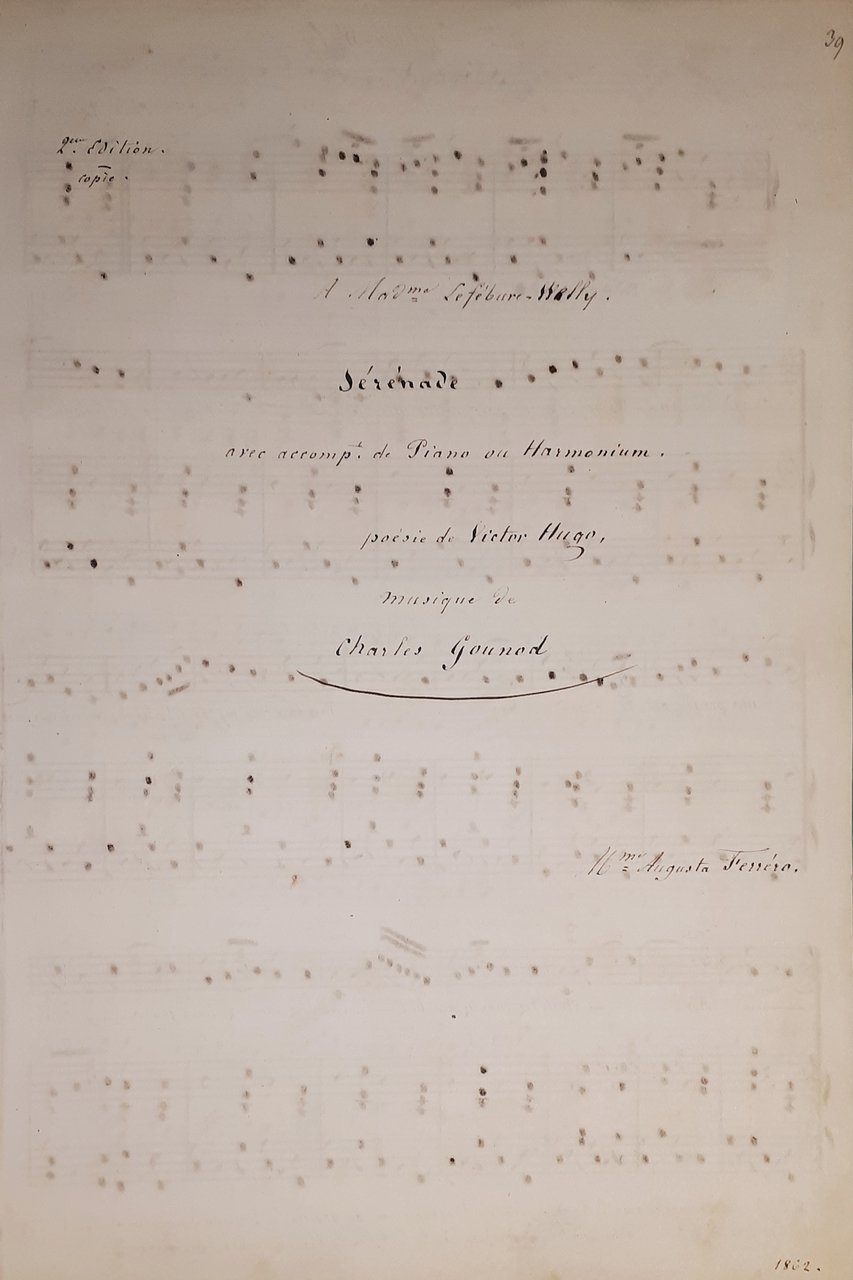 39
2me Edition.
copie.
A Madme Lefébure-Wélly.
Sérénade
avec accompt. de Piano ou Harmonium.
poésie de Victor Hugo,
musique de
Charles Gounod
Mme Augusta Ferréro.
1862.